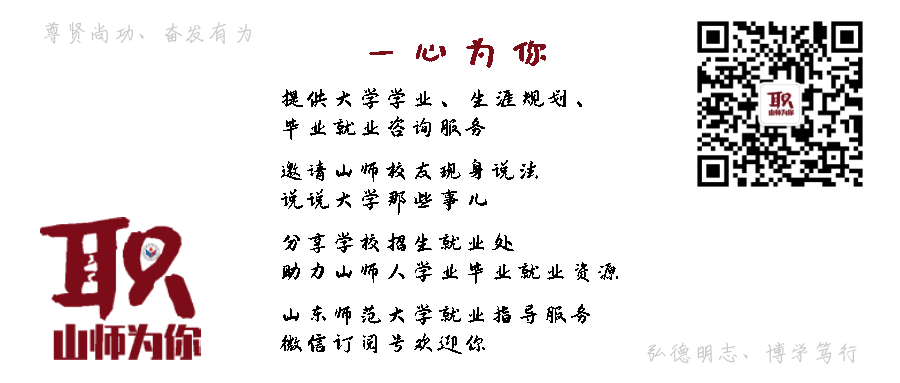 尊贤尚功、奋发有为
一心为你
提供大学学业、生涯规划、
毕业就业咨询服务
邀请山师校友现身说法
说说大学那些事儿
分享学校招生就业处
助力山师人学业毕业就业资源
山东师范大学就业指导服务
微信订阅号欢迎你
职
山师为你
职
山师为你
弘德明志、博学笃行